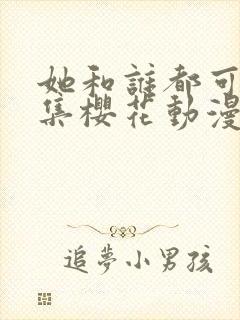 她和誰都可
集櫻花動漫
追夢小男孩